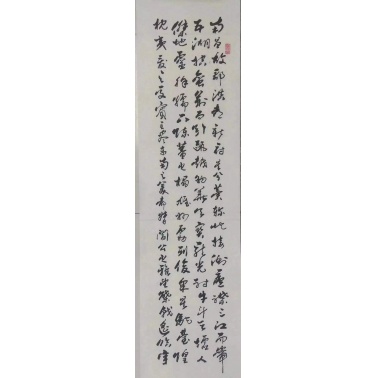 南昌故郡洪都新府星分翼軫地接衡廬襟三江而帶
五湖控蠻荆而引甌越物華天寶龍光射牛斗之墟人
傑地靈徐孺下陳蕃之榻雄州霧列俊采星馳臺隍
枕夷夏之交賓主盡東南之美都督閻公之雅望棨戟遥临宇